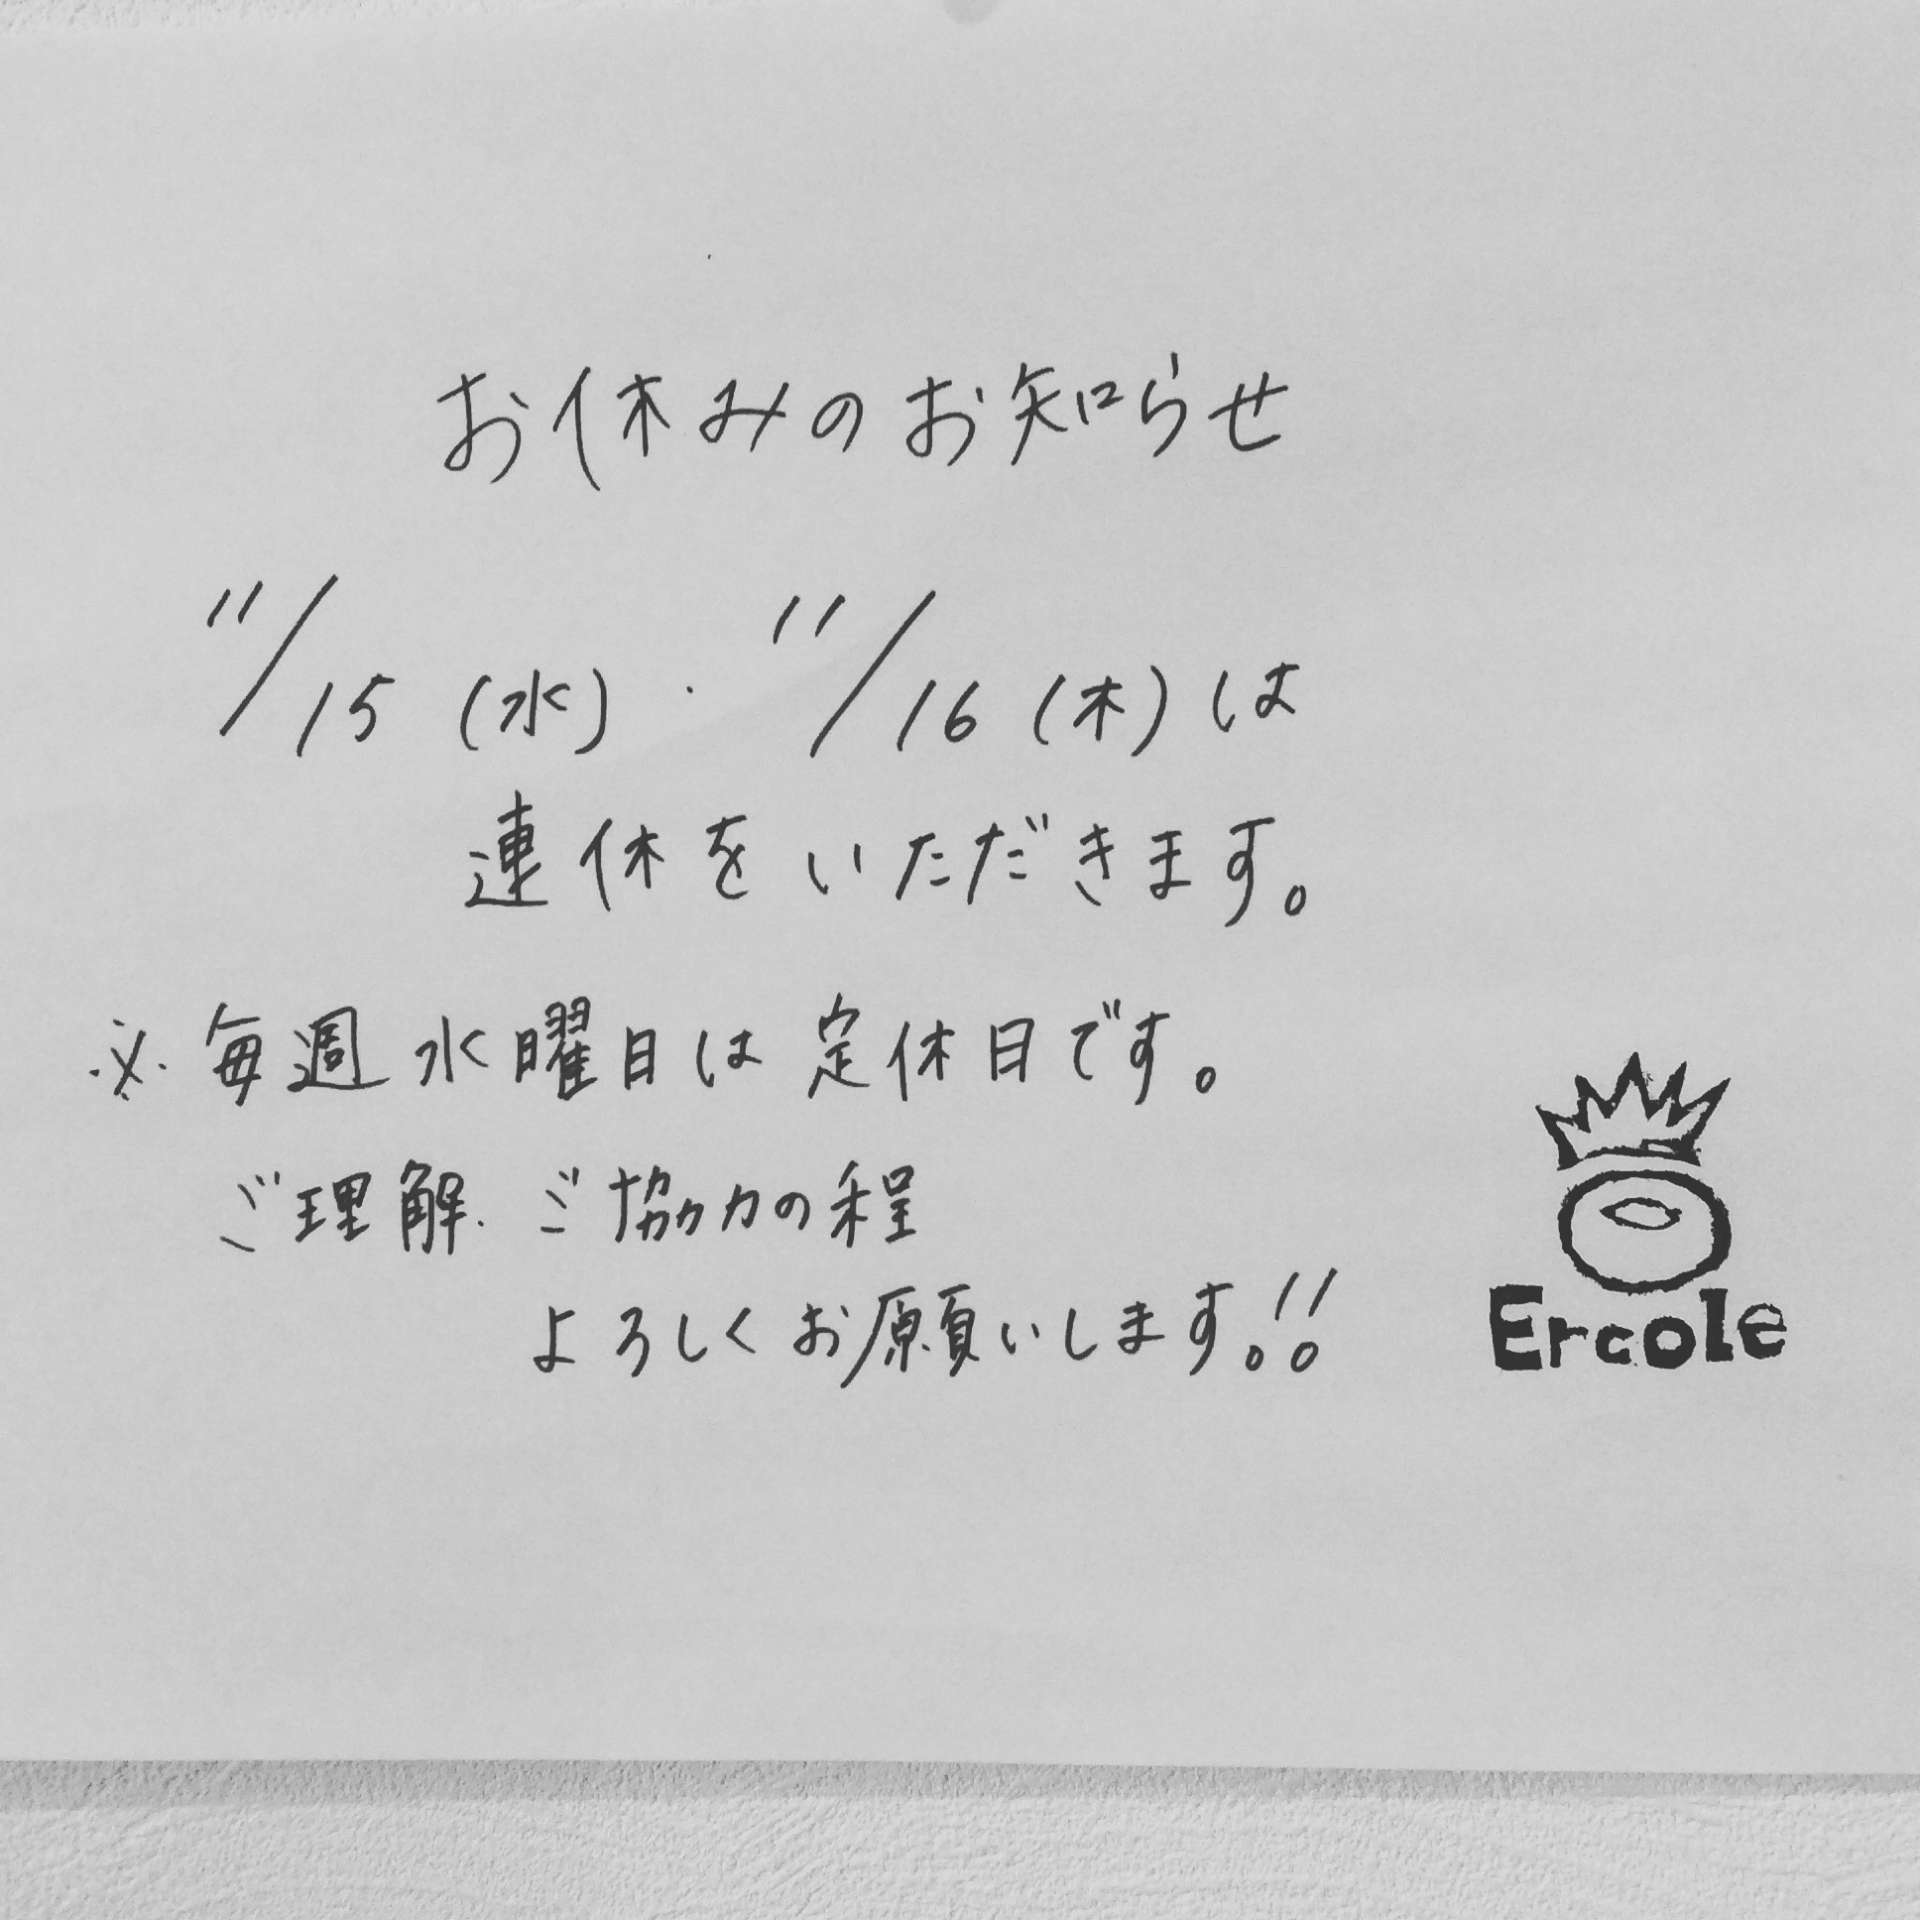 お休みのお知らせ
11/15(水)・11/16(木)は
連休をいただきます。
※毎週水曜日は定休日です。
ご理解、ご協力の程
よろしくお願いします。!!
Ercole